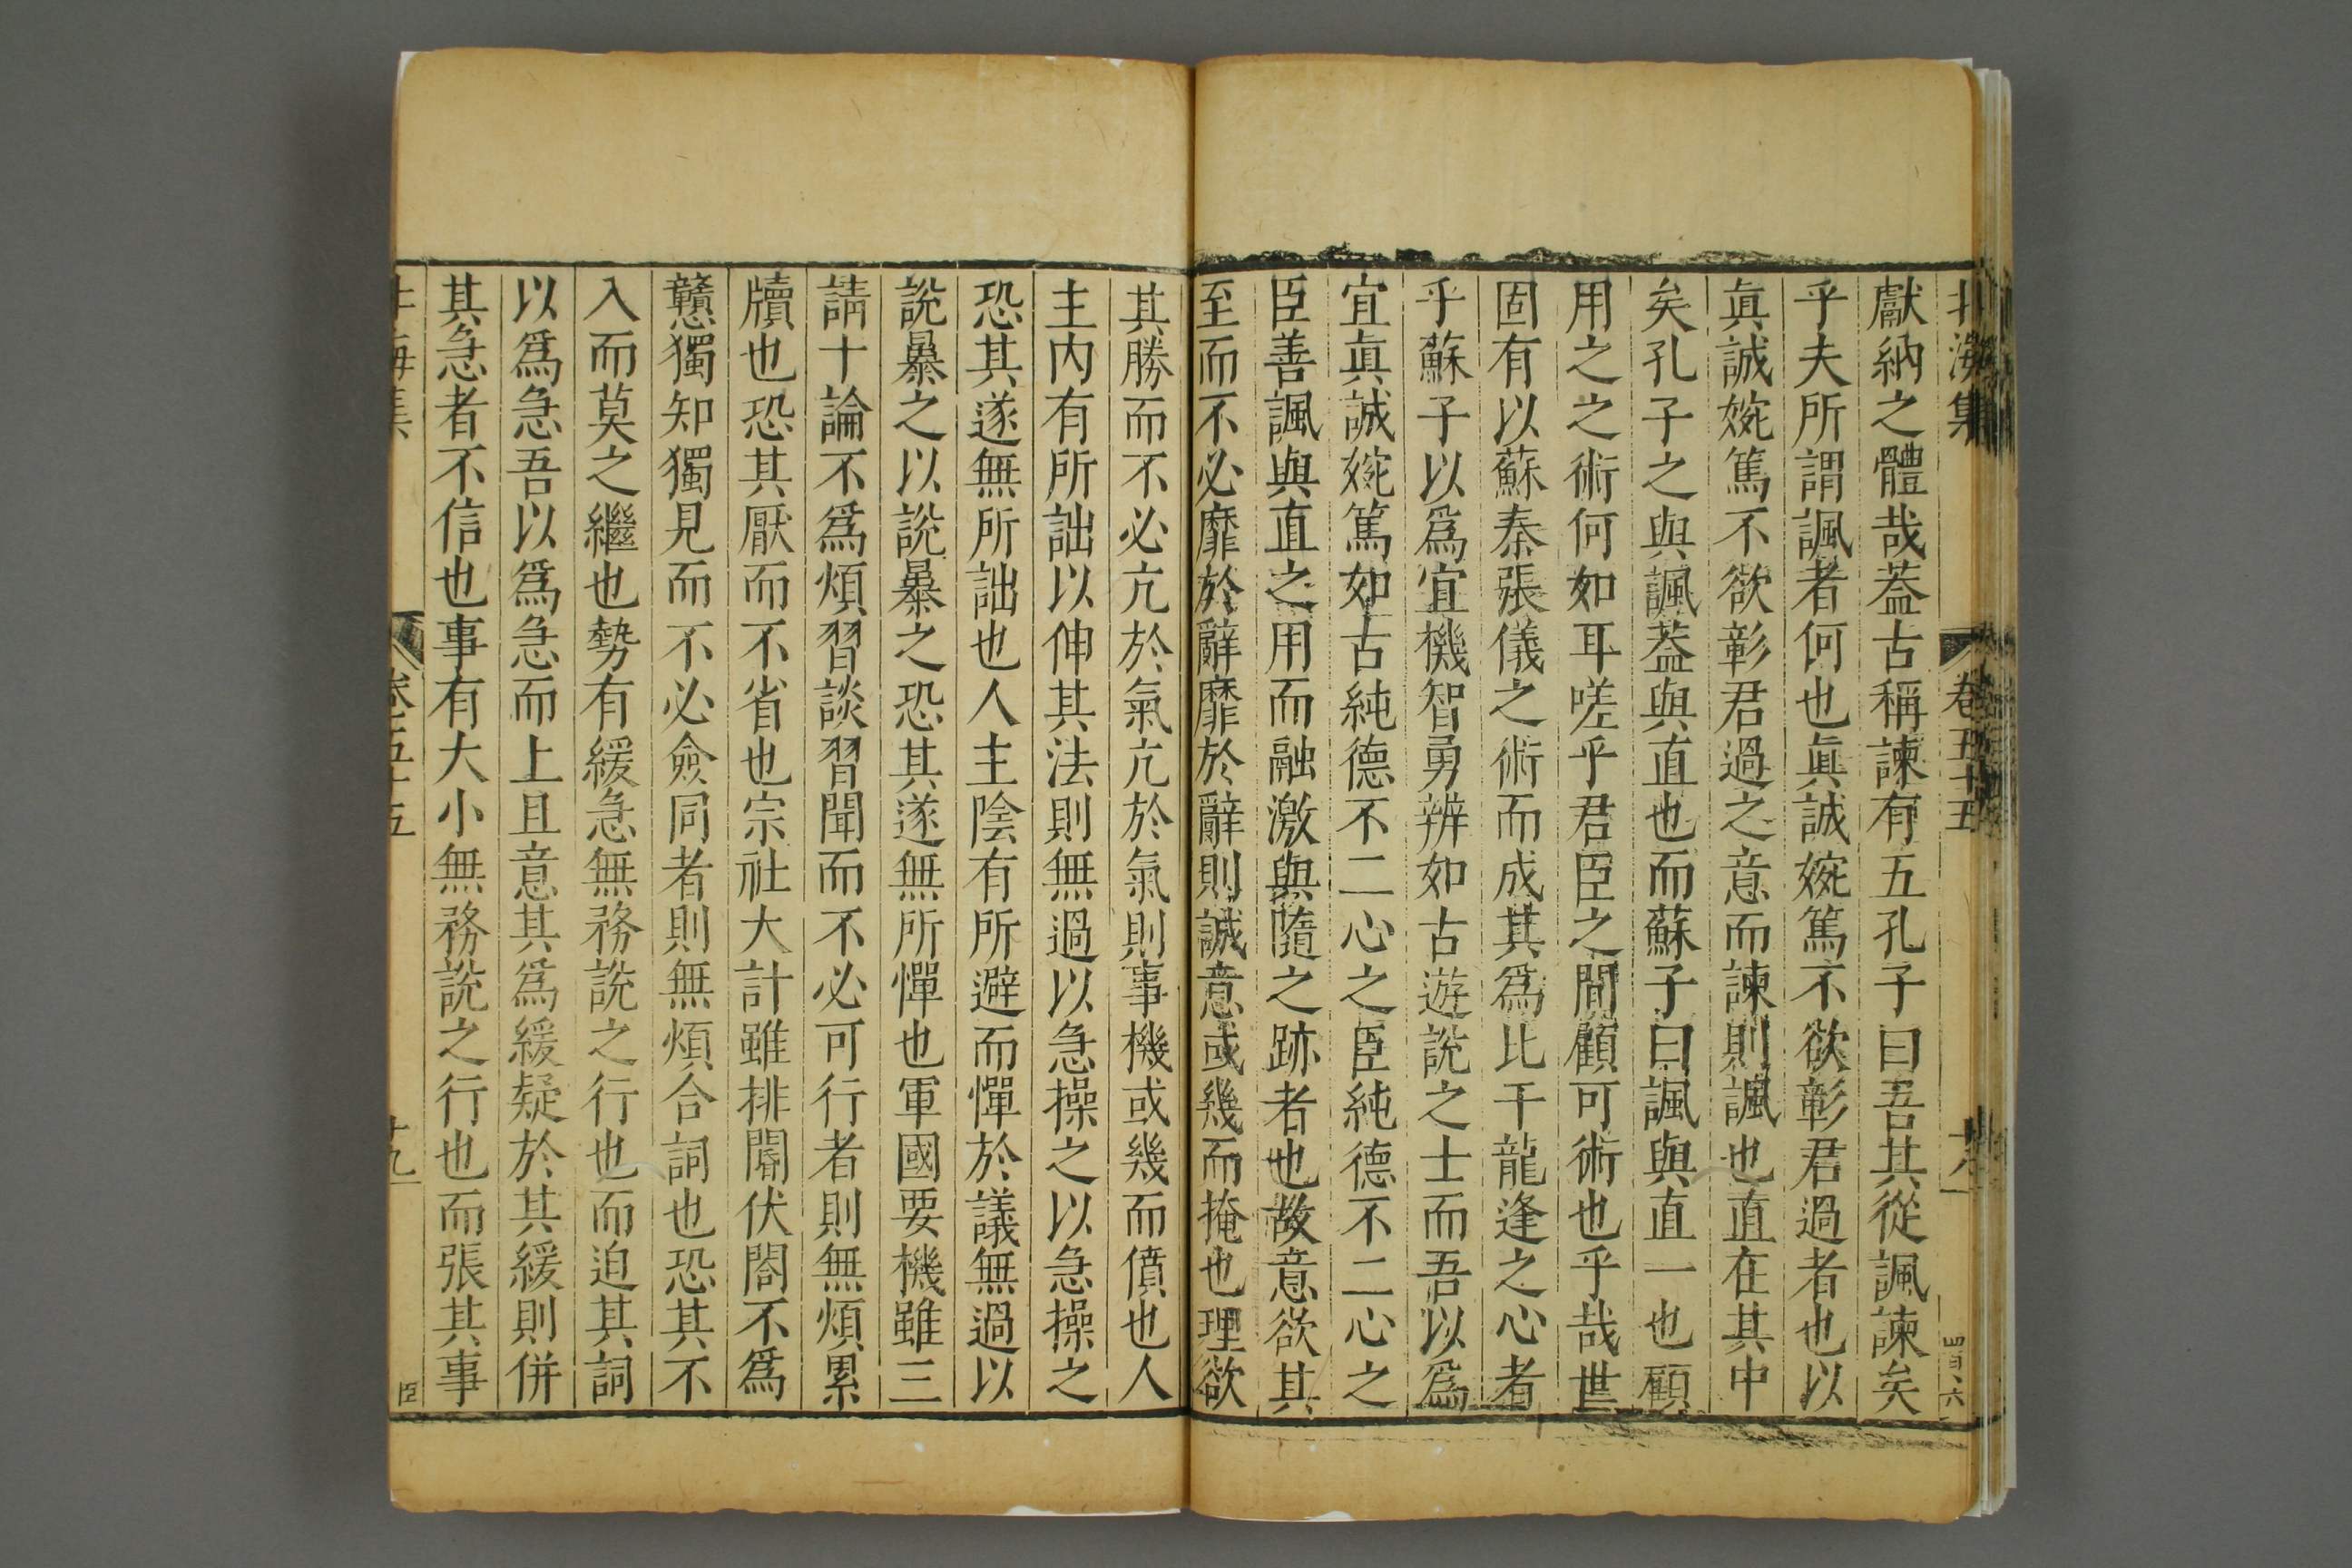 北海集 卷五十五 十八 四百六
獻納之體哉葢古稱諫有五孔子曰吾其從諷諫矣
乎夫所謂諷者何也眞誠婉篤不欲彰君過者也以
眞誠婉篤不欲彰君過之意而諫則諷也直在其中
矣孔子之與諷葢與直也而蘇子曰諷與直一也顧
用之之術何如耳嗟乎君臣之間顧可術也乎哉世
固有以蘇秦張儀之術而成其爲比干龍逢之心者
乎蘇子以爲宜機智勇辨如古遊說之士而吾以爲
宜眞誠婉篤如古純德不二心之臣純德不二心之
臣善諷與直之用而融激與隨之跡者也故意欲其
至而不必靡於辭靡於辭則誠意或幾而掩也理欲
其勝而不必亢於氣亢於氣則事機或幾而僨也人
主内有所詘以伸其法則無過以急操之以急操之
恐其遂無所詘也人主陰有所避而憚於議無過以
說暴之以說暴之恐其遂無所憚也軍國要機雖三
請十論不爲煩習談習聞而不必可行者則無煩累
牘也恐其厭而不省也宗社大計雖排闥伏閤不爲
戇獨知獨見而不必僉同者則無煩合詞也恐其不
入而莫之繼也勢有緩急無務說之行也而迫其詞
以爲急吾以爲急而上且意其爲緩疑於其緩則併
其急者不信也事有大小無務說之行也而張其事
北海集 卷五十五 十九